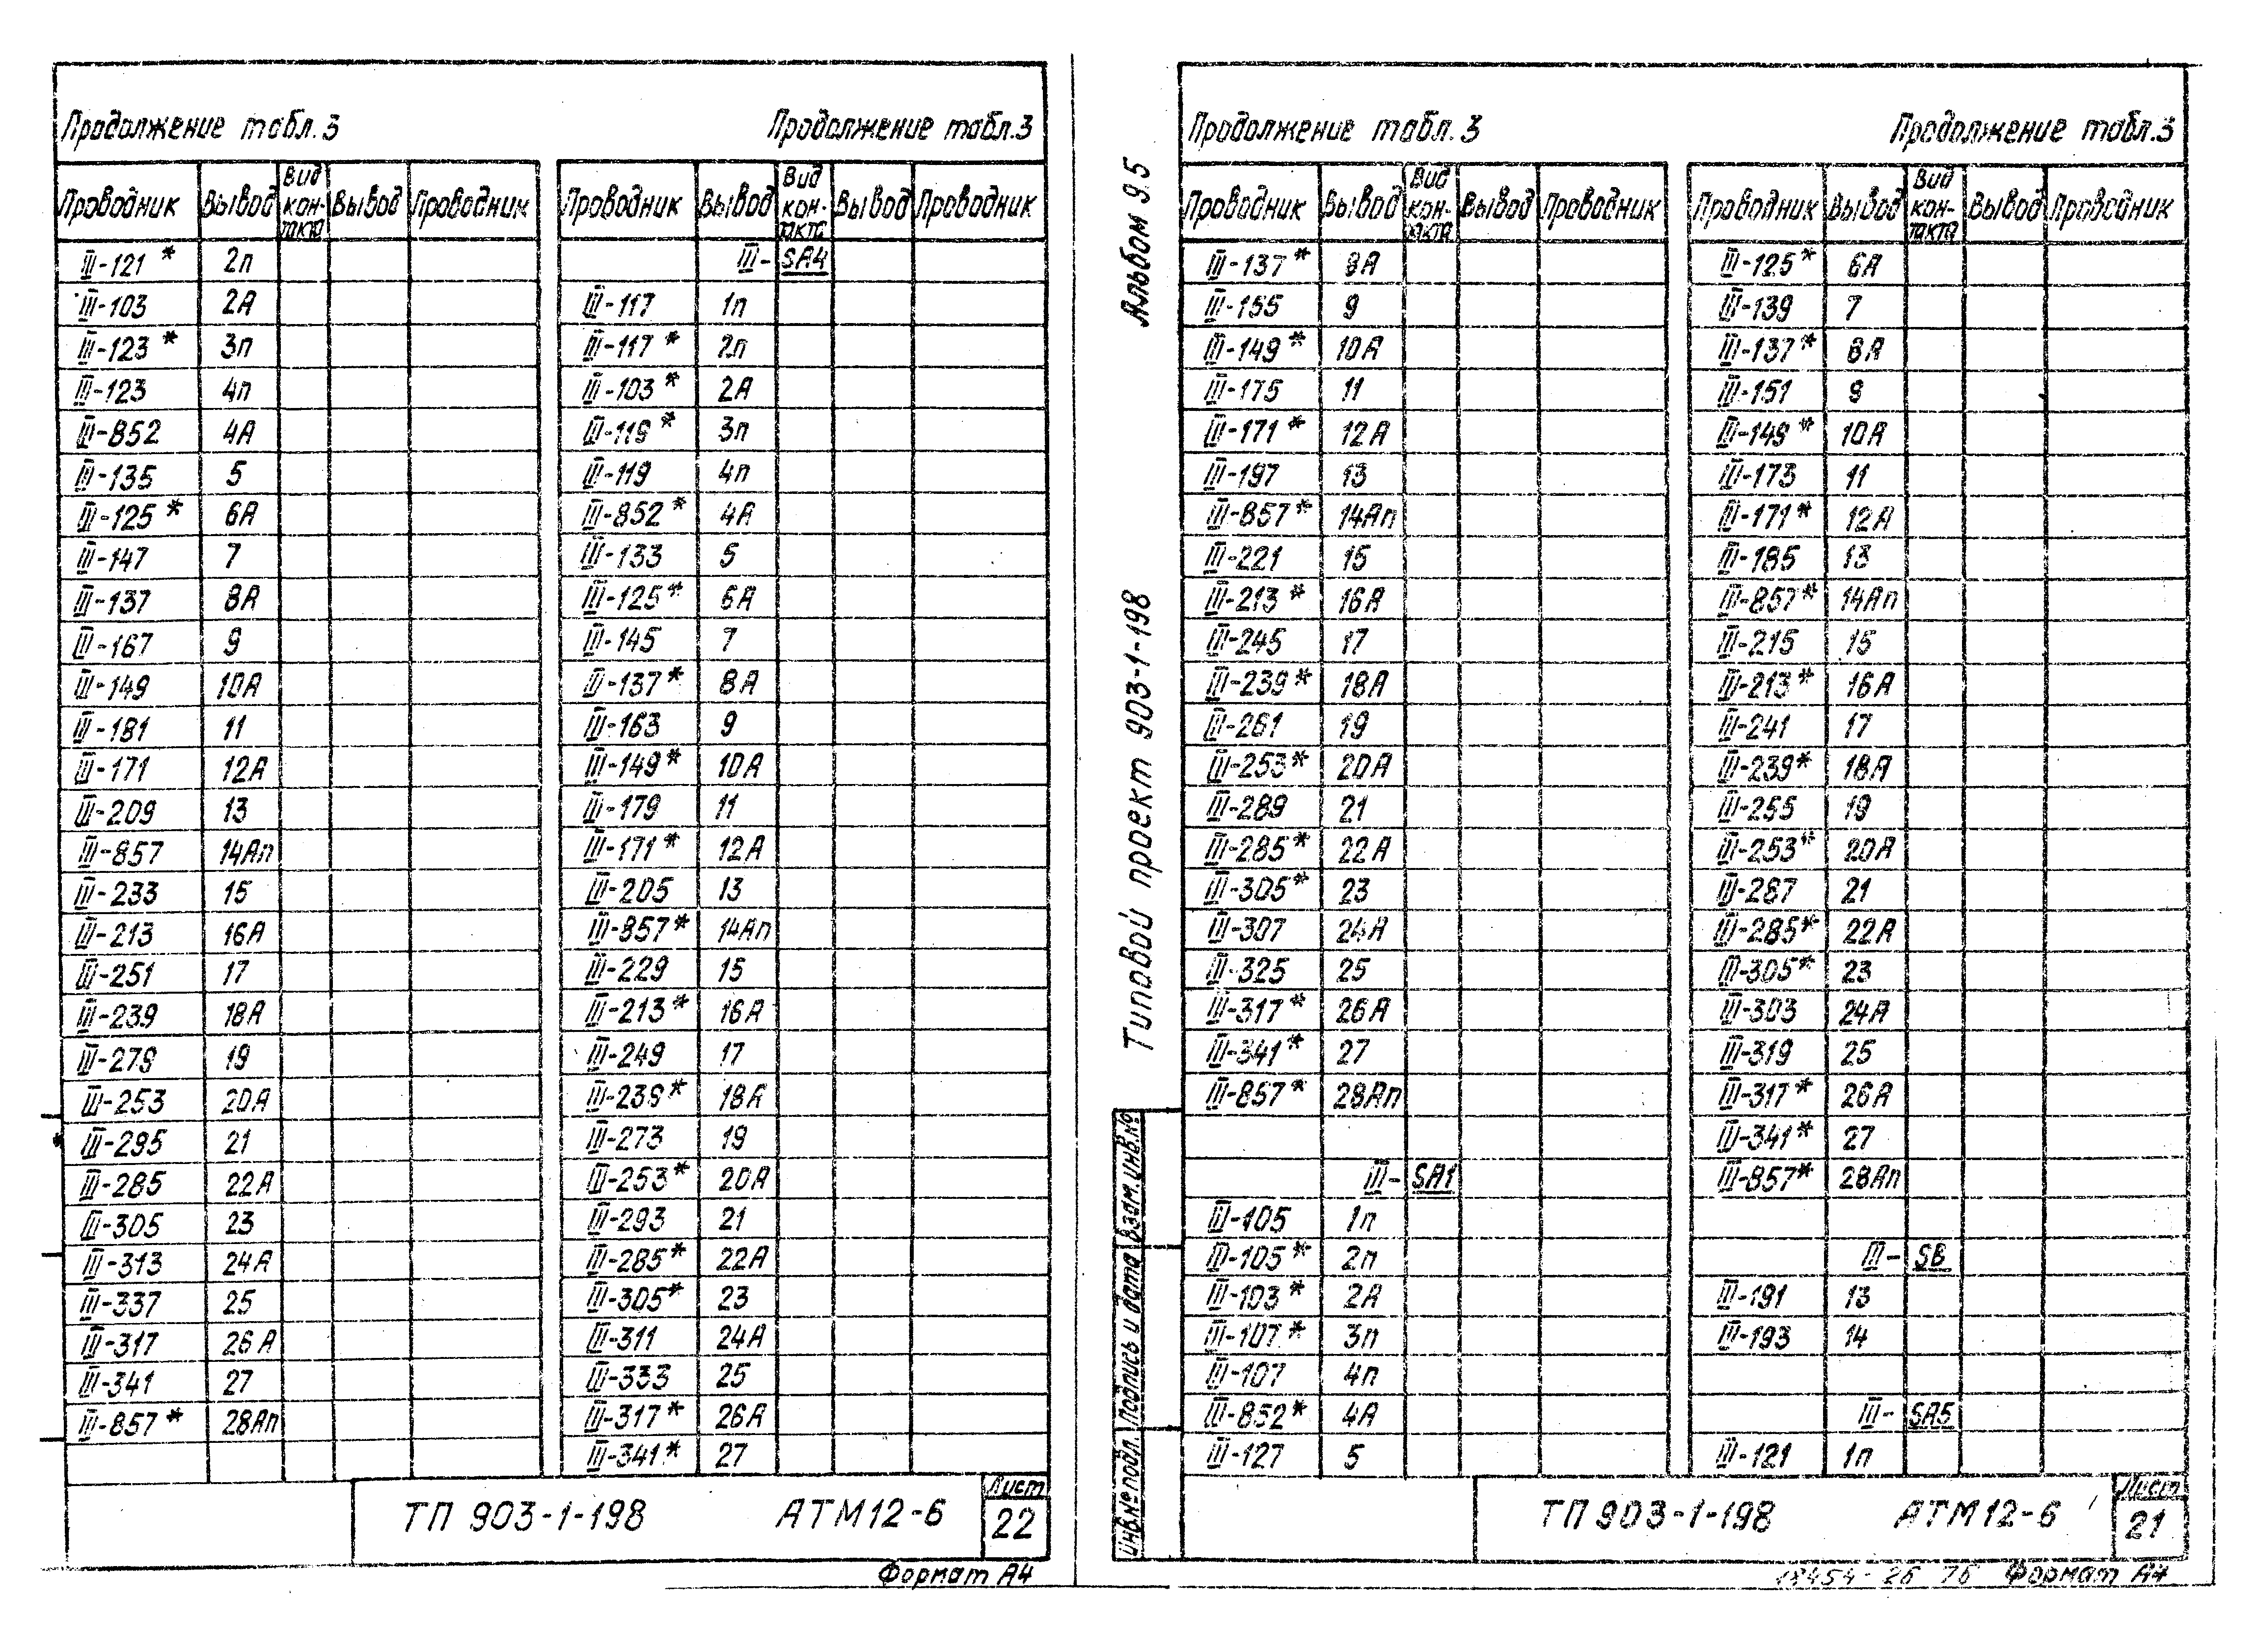 Продолжение табл.3
Проводник Вывод Вид контакта Вывод Проводник
III-121* 2п
III-103 2А
III-123* 3п
III-123 4п
III-852 4А
III-135 5
III-125* 6А
III-147 7
III-137 8А
III-167 9
III-149 10А
III-181 11
III-171 12А
III-209 13
III-857 14Ап
III-233 15
III-213 16А
III-251 17
III-239 18А
III-279 19
III-253 20А
III-295 21
III-285 22А
III-305 23
III-313 24А
III-337 25
III-317 26А
III-341 27
III-857* 28Ап
Продолжение табл.3
Проводник Вывод Вид кон-такта Вывод Проводник
III-SA4
III-117 1п
III-117* 2п
III-103* 2А
III-119* 3п
III-119 4п
III-852* 4А
III-133 5
III-125* 6А
III-145 7
III-137* 8А
III-163 9
III-149* 10А
III-179 11
III-171* 12А
III-205 13
III-857* 14Ап
III-229 15
III-213* 16А
III-249 17
III-239* 18А
III-273 19
III-253* 20А
III-293 21
III-285* 22А
III-305* 23
III-311 24А
III-333 25
III-317* 26А
III-341* 27
ТП 903-1-198 АТМ12-6
Лист
22
Формат А4
Альбом 9.5
Типовой проект 903-1-198
Инв.№ подл. Подпись и дата Взам.инв.№
Продолжение табл.3
Проводник Вывод Вид кон-такта Вывод Проводник
III-137* 8А
III-155 9
III-149* 10А
III-175 11
III-171* 12А
III-197 13
III-857* 14Ап
III-221 15
III-213* 16А
III-245 17
III-239* 18А
III-261 19
III-253* 20А
III-289 21
III-285* 22А
III-305* 23
III-307 24А
III-325 25
III-317* 26А
III-341* 27
III-857* 28Ап
III-SA1
III-105 1п
III-105* 2п
III-103* 2А
III-107* 3п
III-107 4п
III-852* 4А
III-127 5
Продолжение табл.3
Проводник Вывод Вид кон-такта Вывод Проводник
III-125* 6А
III-139 7
III-137* 8А
III-151 9
III-149* 10А
III-173 11
III-171* 12А
III-185 13
III-857* 14Ап
III-215 15
III-213* 16А
III-241 17
III-239* 18А
III-255 19
III-253* 20А
III-287 21
III-285* 22А
III-305* 23
III-303 24А
III-319 25
III-317* 26А
III-341* 27
III-857* 28Ап
III-SB
III-191 13
III-193 14
III-SA5
III-121 1п
ТП 903-1-198 АТМ12-6
Лист
21
18454-26 76 Формат А4